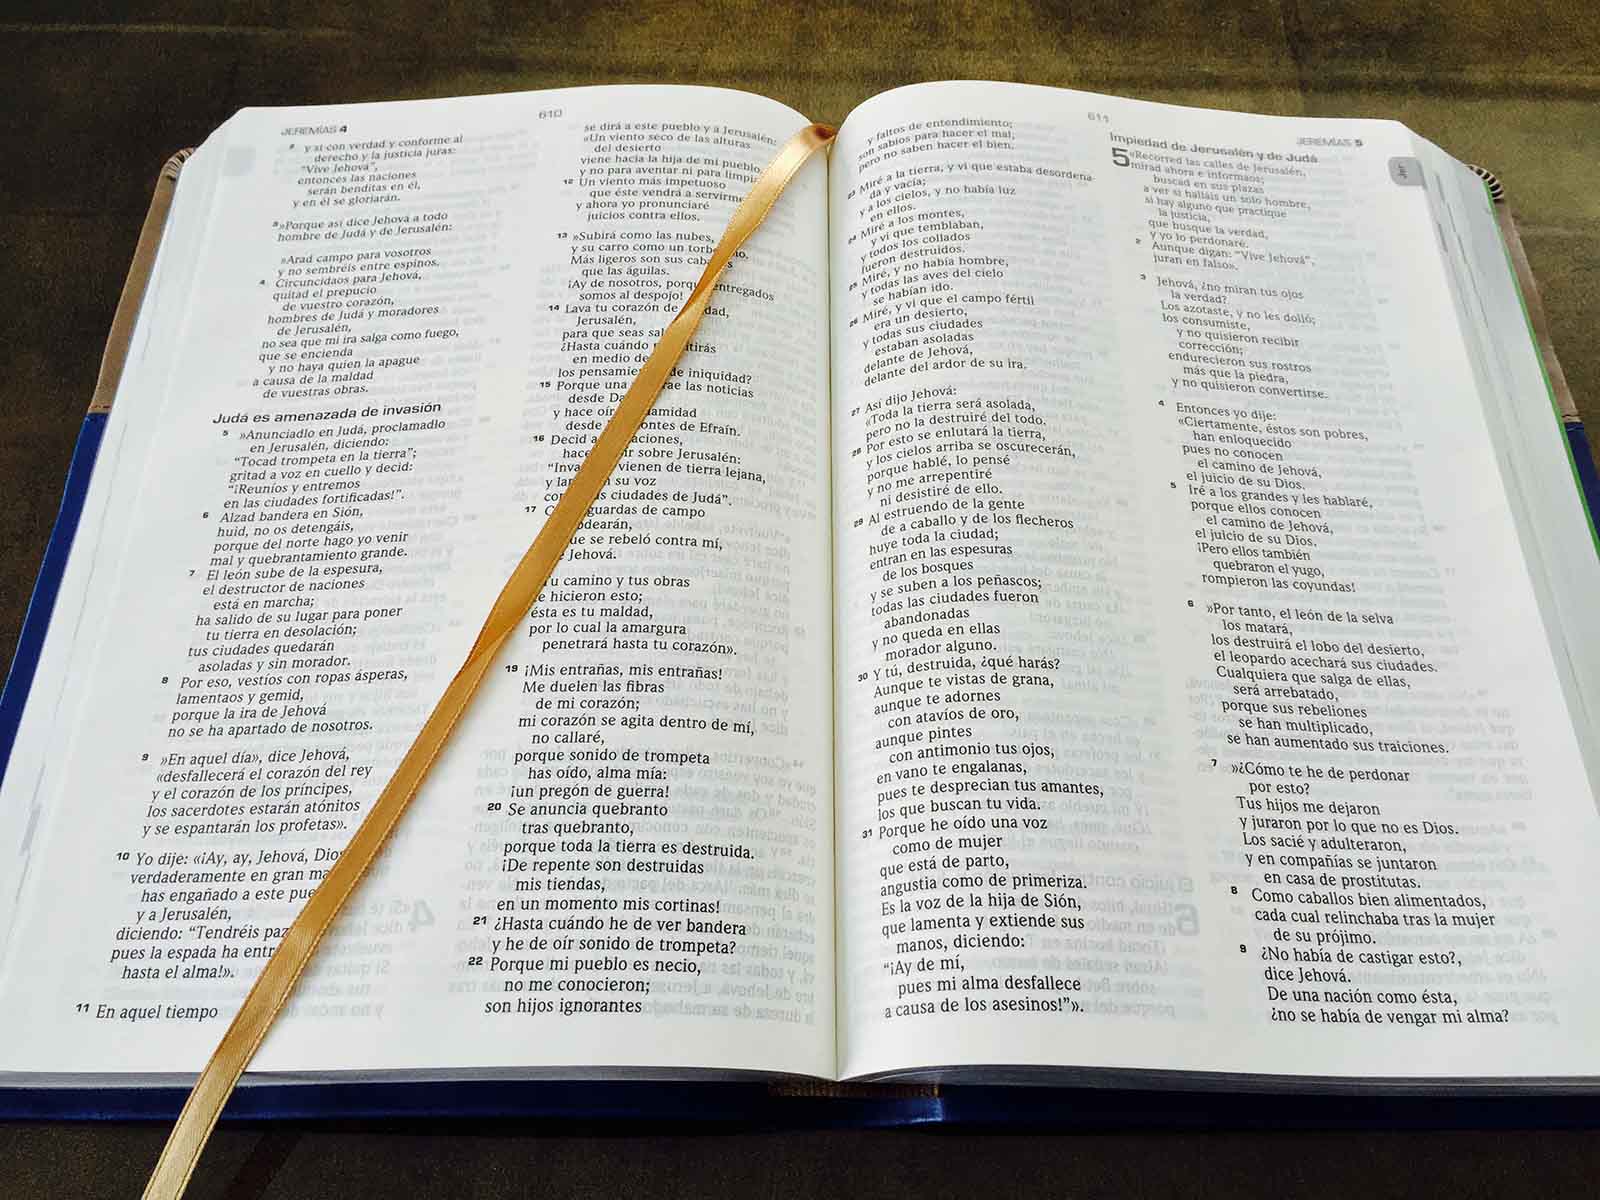 JEREMÍAS 4
610
2 y si con verdad y conforme al
derecho y la justicia juras:
“Vive Jehová”,
entonces las naciones
serán benditas en él,
y en él se gloriarán.
3 »Porque así dice Jehová a todo
hombre de Judá y de Jerusalén:
»Arad campo para vosotros
y no sembréis entre espinos.
4 Circuncidaos para Jehová,
quitad el prepucio
de vuestro corazón,
hombres de Judá y moradores
de Jerusalén,
no sea que mi ira salga como fuego,
que se encienda
y no haya quien la apague
a causa de la maldad
de vuestras obras.
Judá es amenazada de invasión
5 »Anunciadlo en Judá, proclamadlo
en Jerusalén, diciendo:
“Tocad trompeta en la tierra”;
gritad a voz en cuello y decid:
“¡Reuníos y entremos
en las ciudades fortificadas!”.
6 Alzad bandera en Sión,
huid, no os detengáis,
porque del norte hago yo venir
mal y quebrantamiento grande.
7 El león sube de la espesura,
el destructor de naciones
está en marcha;
ha salido de su lugar para poner
tu tierra en desolación;
tus ciudades quedarán
asoladas y sin morador.
8 Por eso, vestíos con ropas ásperas,
lamentaos y gemid,
porque la ira de Jehová
no se ha apartado de nosotros.
9 »En aquel día», dice Jehová,
«desfallecerá el corazón del rey
y el corazón de los príncipes,
los sacerdotes estarán atónitos
y se espantarán los profetas».
10 Yo dije: «¡Ay, ay, Jehová,
verdaderamente en gran
has engañado a este
y a Jerusalén,
diciendo: “Tendréis paz
pues la espada ha
hasta el alma!».
11 En aquel tiempo
se dirá a este pueblo y a Jerusalén:
«Un viento seco de las alturas
del desierto
viene hacia la hija de mi pueblo,
y no para aventar ni para
12 Un viento más impetuoso
que éste vendrá a
y ahora yo pronunciaré
juicios contra ellos.
13 »Subirá como las nubes,
y su carro como un
Más ligeros son sus
que las águilas.
¡Ay de nosotros, entregados
somos al despojo!
14 Lava tu corazón de
Jerusalén,
para que seas
¿Hasta cuándo
en medio de
los de iniquidad?
15 Porque una las noticias
desde
y hace oír
desde de Efraín.
16 Decid a
sobre Jerusalén:
vienen de tierra lejana,
y su voz
ciudades de Judá”.
17 guardas de campo
se rebeló contra mí,
Jehová.
camino y tus obras
hicieron esto;
ésta es tu maldad,
por lo cual la amargura
penetrará hasta tu corazón».
19 ¡Mis entrañas, mis entrañas!
Me duelen las fibras
de mi corazón;
mi corazón se agita dentro de mí,
no callaré,
porque sonido de trompeta
has oído, alma mía:
¡un pregón de guerra!
20 Se anuncia quebranto
tras quebranto,
porque toda la tierra es destruida.
¡De repente son destruidas
mis tiendas,
en un momento mis cortinas!
21 ¿Hasta cuándo he de ver bandera
y he de oír sonido de trompeta?
22 Porque mi pueblo es necio,
no me conocieron;
son hijos ignorantes
611
JEREMÍAS 5
Jer
y faltos de entendimiento;
son sabios para hacer el mal,
pero no saben hacer el bien.
23 Miré a la tierra, y vi que estaba desordena-
da y vacía;
y a los cielos, y no había luz
en ellos.
24 Miré a los montes,
y vi que temblaban,
y todos los collados
fueron destruidos.
25 Miré, y no había hombre,
y todas las aves del cielo
se habían ido.
26 Miré, y vi que el campo fértil
era un desierto,
y todas sus ciudades
estaban asoladas
delante de Jehová,
delante del ardor de su ira.
27 Así dijo Jehová:
«Toda la tierra será asolada,
pero no la destruiré del todo.
28 Por esto se enlutará la tierra,
y los cielos arriba se oscurecerán,
porque hablé, lo pensé
y no me arrepentiré
ni desistiré de ello.
29 Al estruendo de la gente
de a caballo y de los flecheros
huye toda la ciudad;
entran en las espesuras
de los bosques
y se suben a los peñascos;
todas las ciudades fueron
abandonadas
y no queda en ellas
morador alguno.
30 Y tú, destruida, ¿qué harás?
Aunque te vistas de grana,
aunque te adornes
con atavíos de oro,
aunque pintes
con antimonio tus ojos,
en vano te engalanas,
pues te desprecian tus amantes,
los que buscan tu vida.
31 Porque he oído una voz
como de mujer
que está de parto,
angustia como de primeriza.
Es la voz de la hija de Sión,
que lamenta y extiende sus
manos, diciendo:
“¡Ay de mí,
pues mi alma desfallece
a causa de los asesinos!”».
Impiedad de Jerusalén y de Judá
5 «Recorred las calles de Jerusalén,
mirad ahora e informaos;
buscad en sus plazas
a ver si halláis un solo hombre,
si hay alguno que practique
la justicia,
que busque la verdad,
y yo lo perdonaré.
2 Aunque digan: “Vive Jehová”,
juran en falso».
3 Jehová, ¿no miran tus ojos
la verdad?
Los azotaste, y no les dolió;
los consumiste,
y no quisieron recibir
corrección;
endurecieron sus rostros
más que la piedra,
y no quisieron convertirse.
4 Entonces yo dije:
«Ciertamente, éstos son pobres,
han enloquecido
pues no conocen
el camino de Jehová,
el juicio de su Dios.
5 Iré a los grandes y les hablaré,
porque ellos conocen
el camino de Jehová,
el juicio de su Dios.
¡Pero ellos también
quebraron el yugo,
rompieron las coyundas!
6 »Por tanto, el león de la selva
los matará,
los destruirá el lobo del desierto,
el leopardo acechará sus ciudades.
Cualquiera que salga de ellas,
será arrebatado,
porque sus rebeliones
se han multiplicado,
se han aumentado sus traiciones.
7 »¿Cómo te he de perdonar
por esto?
Tus hijos me dejaron
y juraron por lo que no es Dios.
Los sacié y adulteraron,
y en compañías se juntaron
en casa de prostitutas.
8 Como caballos bien alimentados,
cada cual relinchaba tras la mujer
de su prójimo.
9 ¿No había de castigar esto?,
dice Jehová.
De una nación como ésta,
¿no se había de vengar mi alma?